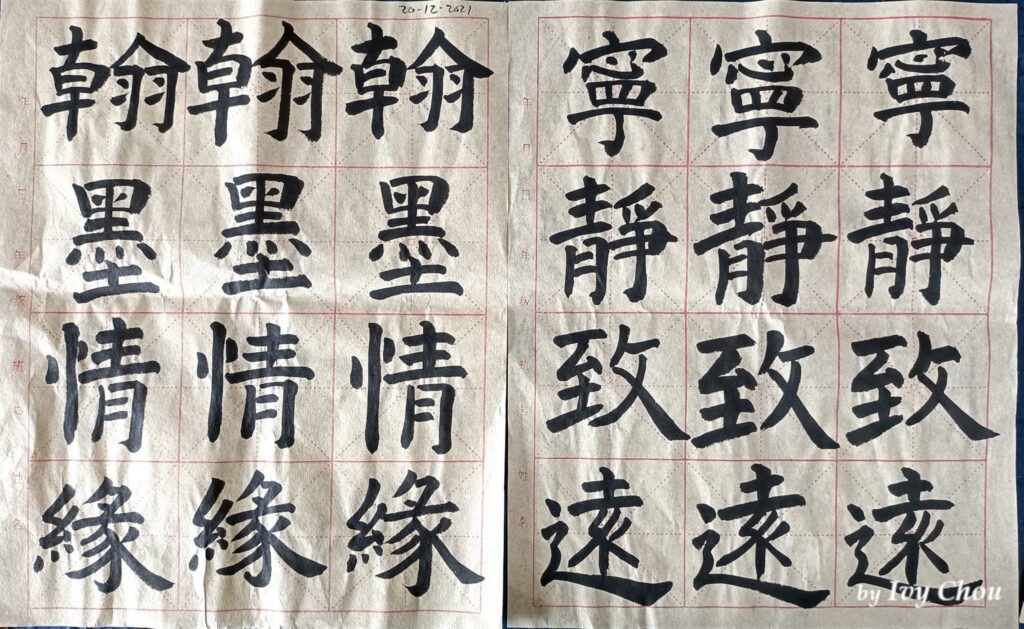 20-12-2021
翰翰翰
墨墨墨
情情情
緣緣緣
寧寧寧
靜靜靜
致致致
遠遠遠
by Ivy Chou